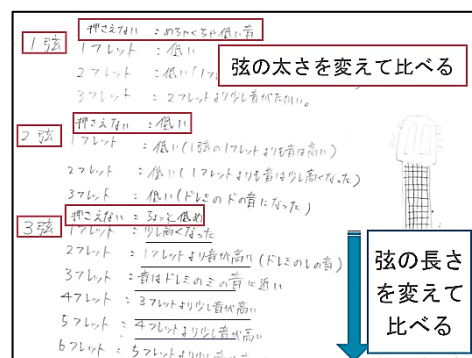 1弦
押さえない：めちゃくちゃ低い音
1フレット：低い
2フレット：低い(1フレ
3フレット：2フレットより少し音がたかい。
弦の太さを変えて比べる
2弦
押さえない：低い
1フレット：低い(1弦の1フレットよりも音は高い)
2フレット：低い(1フレットよりも音は少し高くなった)
3フレット：低い(ドレミのドの音になった)
3弦
押さえない：ちょっと低め
1フレット：少し高くなった
2フレット：1フレットより音が高い(ドレミのレの音)
3フレット：音はドレミのミの音に近い
4フレット：3フレットより少し音が高い
5フレット：4フレットより少し音が高い
6フレット：5フレットより
弦の長さ
を変えて
比べる